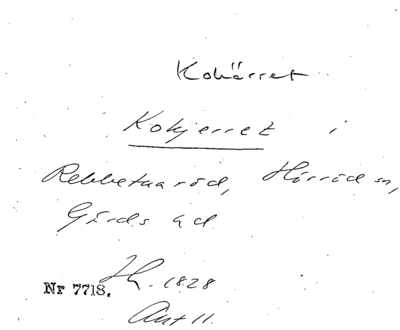 Kohärret
Kohjerret i
Rebbetuaröd, Hörröd sn,
Gärds hd
Nr 7718. Th. 1828
Akt 11.